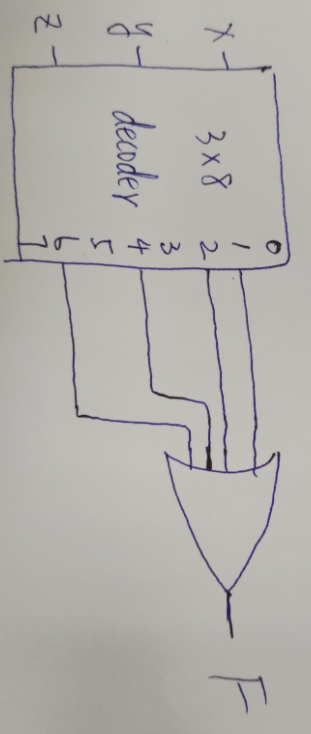 x
y
z
3x8
decoder
0
1
2
3
4
5
6
7
F